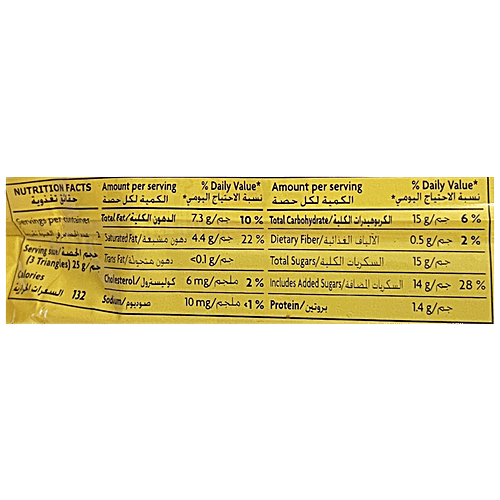 NUTRITION FACTS
حقائق تغذوية
Servings per container
Serving size/حجم الحصة
(3 Triangles) 25 g/جم
Calories
السعرات الحرارية 132
Amount per serving % Daily Value*
الكمية لكل حصة نسبة الاحتياج اليومي*
Total Fat/الدهون الكلية 7.3 g/جم 10 %
Saturated Fat/دهون مشبعة 4.4 g/جم 22 %
Trans Fat/دهون متحولة <0.1 g/جم
Cholesterol/كوليسترول 6 mg/ملجم 2 %
Sodium/صوديوم 10 mg/ملجم <1 %
Amount per serving % Daily Value*
الكمية لكل حصة نسبة الاحتياج اليومي*
Total Carbohydrate/الكربوهيدرات الكلية 15 g/جم 6 %
Dietary Fiber/الألياف الغذائية 0.5 g/جم 2 %
Total Sugars/السكريات الكلية 15 g/جم
Includes Added Sugars/السكريات المضافة 14 g/جم 28 %
Protein/بروتين 1.4 g/جم